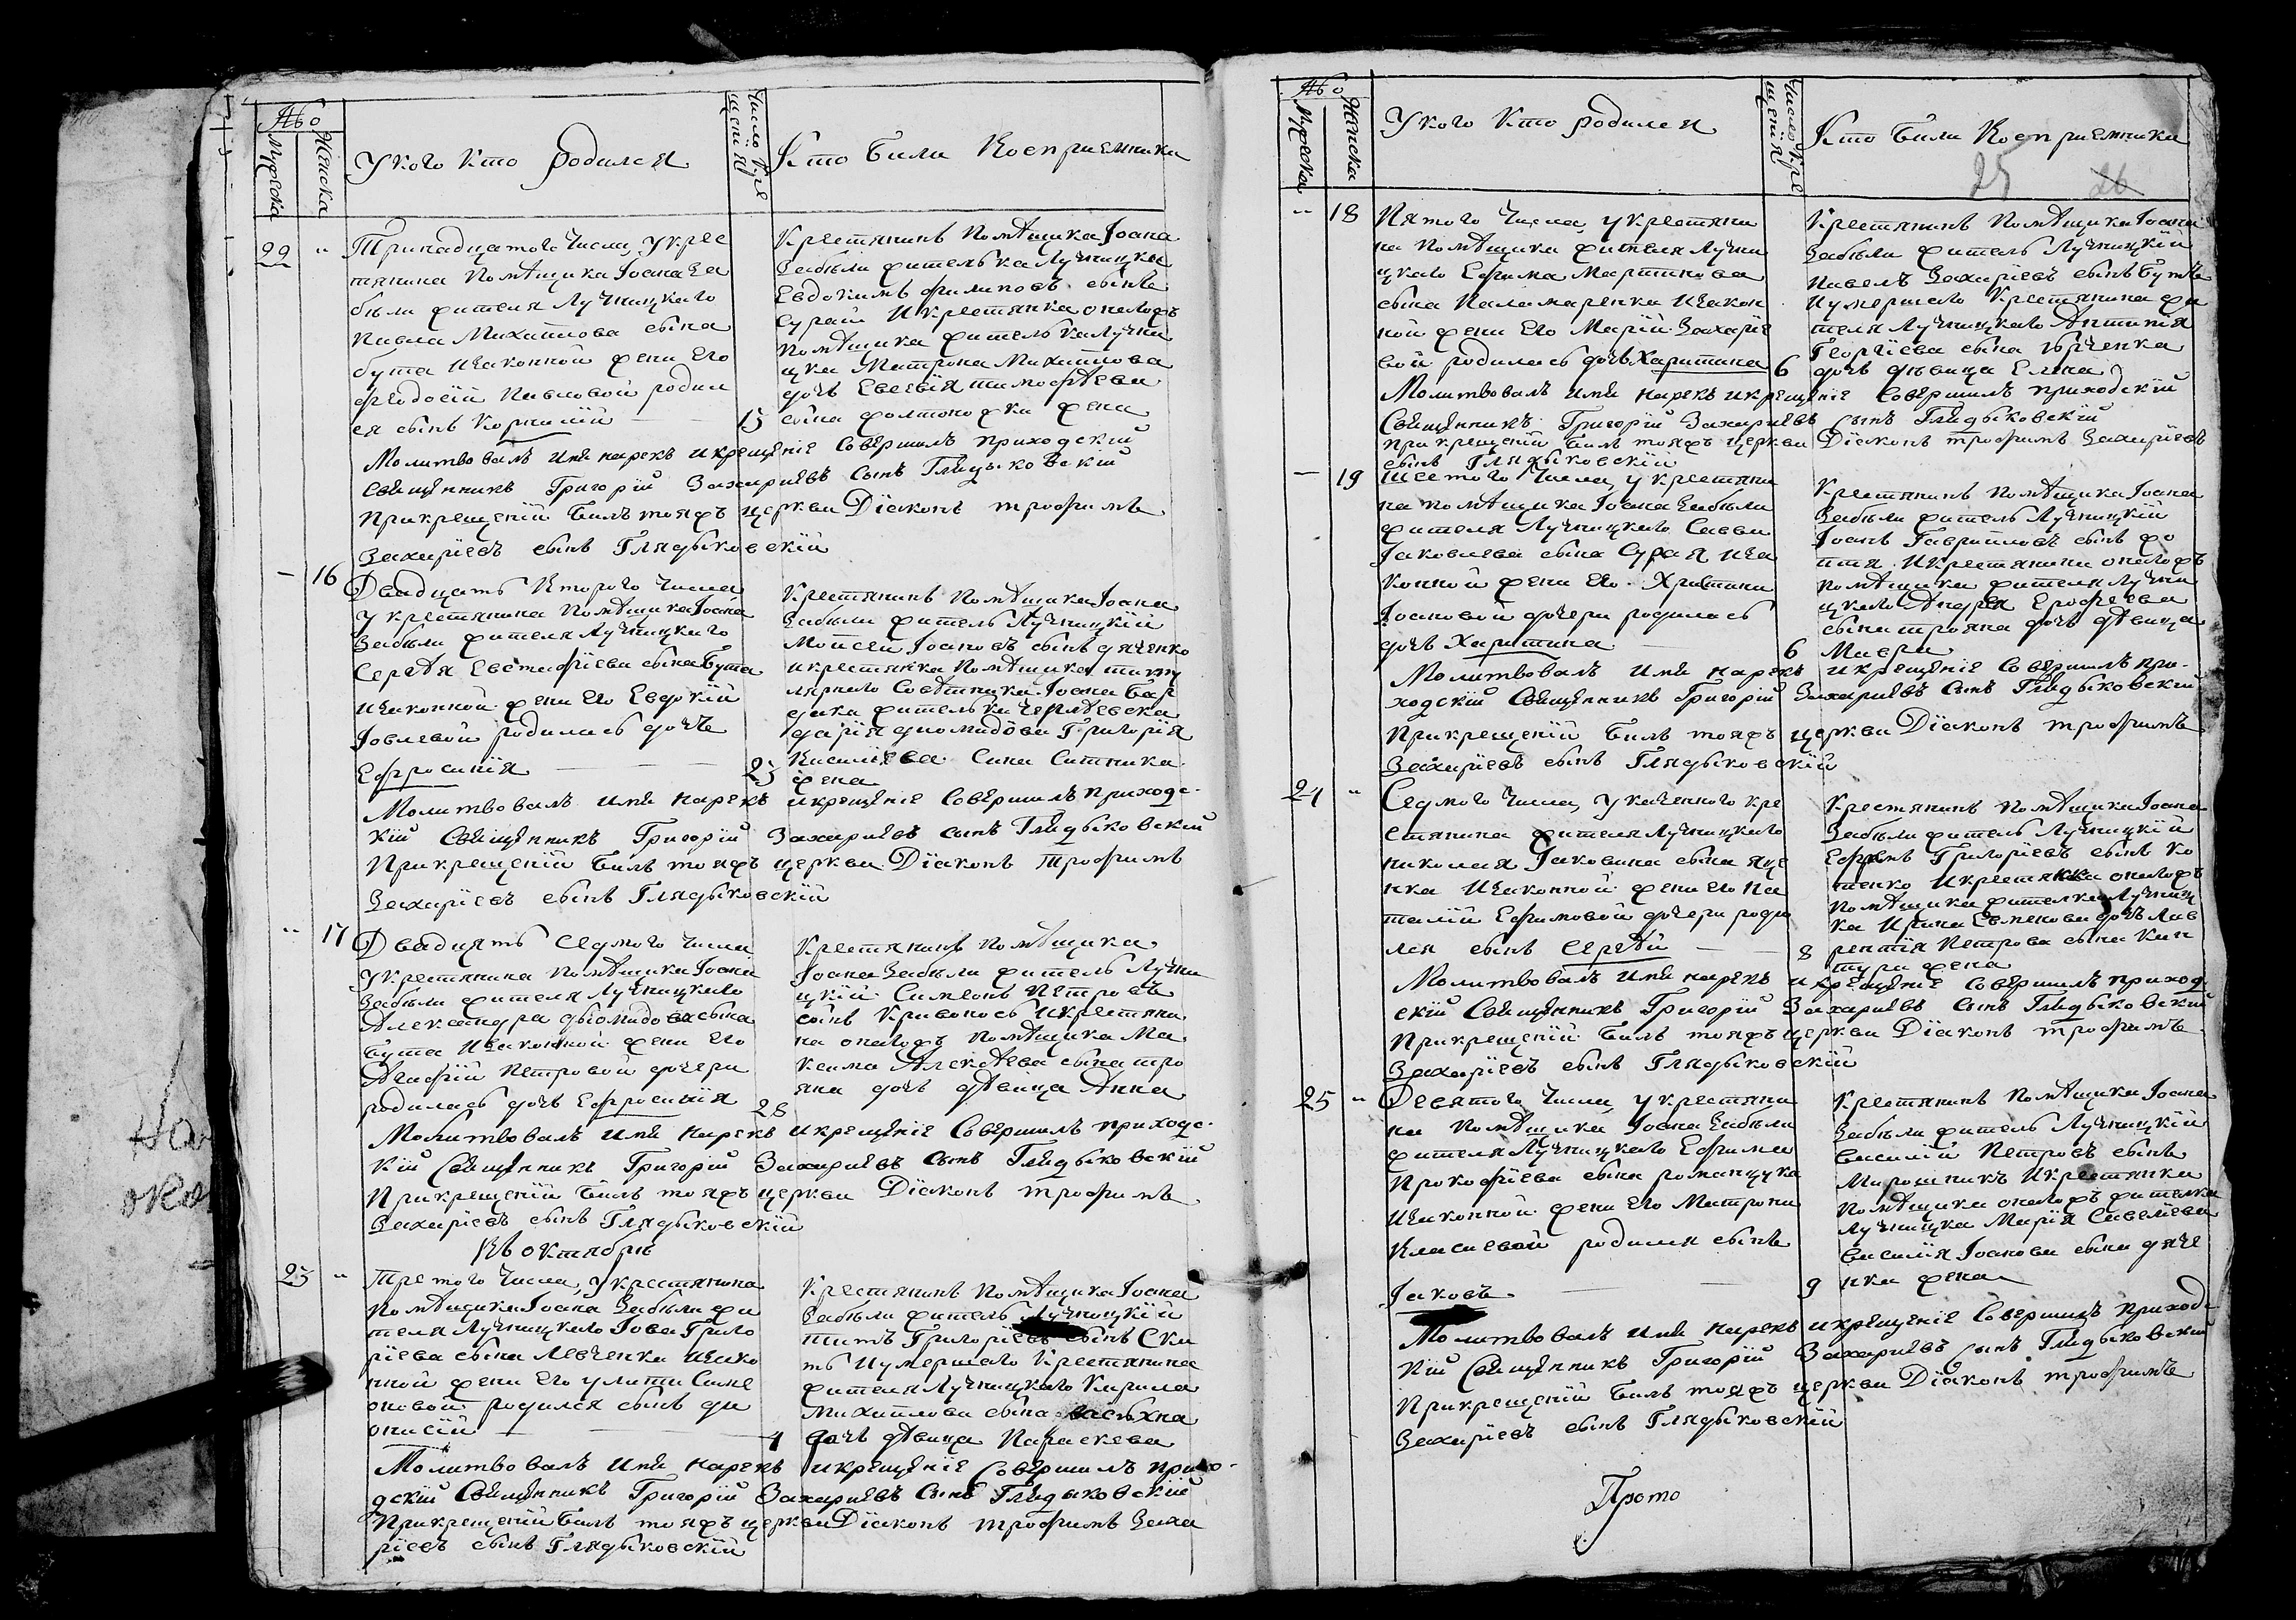 Аб о
Мужеска
Женска
У кого кто родился
Число кре
щения
Кто били восприемники
22 „ Тринадцатого числа, у крес
тянина помѣщика Іоана За
били жителя Лучницкаго
Павла Михайлова сына
бута изаконной жени его
феодосїй Павловой родил
ся сынъ Корнилїй — 15
Крестянинъ помѣщика Іоана
Забили жителька Лучницкая
Евдокимъ филиповъ сынъ
Сурай икрестянка оногожъ
помѣщика жителька Лучни
цка Матрона Михайлова
дочь Евсевїя тимофѣева
сина жена
Молитвовалъ имя нарекъ икрещенїе совершилъ приходскїй
священникъ Григорїй Захарїевъ сынъ Глядыковскїй
прикрещенїй билъ тояжъ церкви Дїаконъ трофимъ
Захарїевъ сынъ Глядыковскїй
— 16 Двадцать второго числа
у крестянина помѣщика Іоана
Забили жителя Лучницкаго
Сергѣя Евстафїева сына Бута
изаконной жени его Евдокїй
Іовлевой родилась дочь
Ефросинїя — 23
Крестянинъ помѣщика Іоана
Забили житель Лучницкїй
Мойсей Іоановъ сынъ дяченко
икрестянка помѣщика титу
лярного совѣтника Іоана Бар
дака жителька
дарїя диомидова Григорїя
Василїева сина Ситника
жена
Молитвовалъ имя нарекъ икрещенїе совершилъ приходс-
кїй священникъ Григорїй Захарїевъ сынъ Глядыковскїй
прикрещенїй билъ тояжъ церкви Дїаконъ трофимъ
Захарїевъ сынъ Глядыковскїй
„ 17 Двадцять седмого числа
у крестянина помѣщика Іоана
Забили жителя Лучницкаго
Александра дьомидова сына
бута изаконной жени его
Агафїй Петровой дочери
родилась дочь Ефросинїя 28
Крестянинъ помѣщика
Іоана Забили житель Лучни
цкїй Симеонъ Петровъ
сынъ Кривонось икрестяни
на оногожъ помѣщика Ма
ксима Алексѣева сына тро
яна дочь дѣвица Анна
Молитвовалъ имя нарекъ икрещенїе совершилъ приходс-
кїй священникъ Григорїй Захарїевъ сынъ Глядыковскїй
прикрещенїй билъ тояжъ церкви Дїаконъ трофимъ
Захарїевъ сынъ Глядыковскїй
Въ октябрѣ
23 „ Третого числа, у крестянина
помѣщика Іоана Забили жи
теля Лучницкаго Іова Григо
рїева сына Левченка изако
нной жени его улити Симе
оновой родился сынъ ди
онисїй — 4
Крестянинъ помѣщика Іоана
Забили житель Лучницкїй
титъ Григорїевъ сынъ Ска
ть иумершаго крестянина
жителя Лучницкаго Кирила
Михайлова сына
дочь дѣвица Параскева
Молитвовалъ имя нарекъ икрещенїе совершилъ прихо-
дскїй священникъ Григорїй Захарїевъ сынъ Глядыковскїй
прикрещенїй билъ тояжъ церкви Дїаконъ трофимъ Заха
рїевъ сынъ Глядыковскїй
Аб о
Мужеска
Женска
У кого кто родился
Число кре
щенїя
Кто били восприемники
25 26
„ 18 Пятого числа, у крестяни
на помѣщика жителя Лучни
цкаго Ефима Мартинова
сына Паламаренка изакон
ной жени его Марїй Захарїе
вой родилась дочь Харитина 6
Крестянинъ помѣщика Іоана
Забили житель Лучницкїй
Павелъ Захарїевъ сынъ Бутъ
иумершаго крестянина жи
теля Лучницкаго Антипїя
Георгїева сына
дочь дѣвица Елена
Молитвовалъ имя нарекъ икрещенїе совершилъ приходскїй
священникъ Григорїй Захарїевъ сынъ Глядыковскїй
прикрещенїй билъ тояжъ церкви Дїаконъ трофимъ Захарїевъ
сынъ Глядыковскїй
— 19 Шестого числа, у крестяни
на помѣщика Іоана Забили
жителя Лучницкаго Савви
Іаковлева сына Сурая иза
конной жени его Христини
Іоановой дочери родилась
дочь Харитина — 6
Крестянинъ помѣщика Іоана
Забили житель Лучницкїй
Іоанъ Гаврїиловъ сынъ
икрестянина оногожъ
помѣщика жителя Лучни
цкаго Андрея Ерофеева
сына трояна дочь дѣвица
Мавра
Молитвовалъ имя нарекъ икрещенїе совершилъ при-
ходскїй священникъ Григорїй Захарїевъ сынъ Глядыковскїй
прикрещенїй билъ тояжъ церкви Дїаконъ трофимъ
Захарїевъ сынъ Глядыковскїй
24 „ Седмого числа, у казенного кре
стянина жителя Лучницкаго
николая Іаковина сына яце
нка изаконной жени его На
талїй Ефимовой дочери роди
лся сынъ Сергѣй — 8
Крестянинъ помѣщика Іоана
Забили житель Лучницкїй
Ефремъ Григорїевъ сынъ Ко
тенко икрестянка оногожъ
помѣщика жителка Лучниц
ка Ирина Евменова дочь Лав
рентїя Петрова сына
жена
Молитвовалъ имя нарекъ икрещенїе совершилъ приход
скїй священникъ Григорїй Захарїевъ сынъ Глядыковскїй
прикрещенїй билъ тояжъ церкви Дїаконъ трофимъ
Захарїевъ сынъ Глядыковскїй
25 „ Девятого числа, у крестяни
на помѣщика Іоана Забили
жителя Лучницкаго Ефима
Прокофїева сына романцука
изаконной жени его Матрони
Власиевой родился сынъ
Іаковъ — 9
Крестянинъ помѣщика Іоана
Забили житель Лучницкїй
василїй Петровъ сынъ
Мирошникъ икрестянка
помѣщика оногожъ жителка
Лучницка Марїя Савелїева
василїя Іоанова сына дяче
нка жена
Молитвовалъ имя нарекъ икрещенїе совершилъ приходс
кїй священникъ Григорїй Захарїевъ сынъ Глядыковскїй
прикрещенїй билъ тояжъ церкви Дїаконъ трофимъ
Захарїевъ сынъ Глядыковскїй
Прото